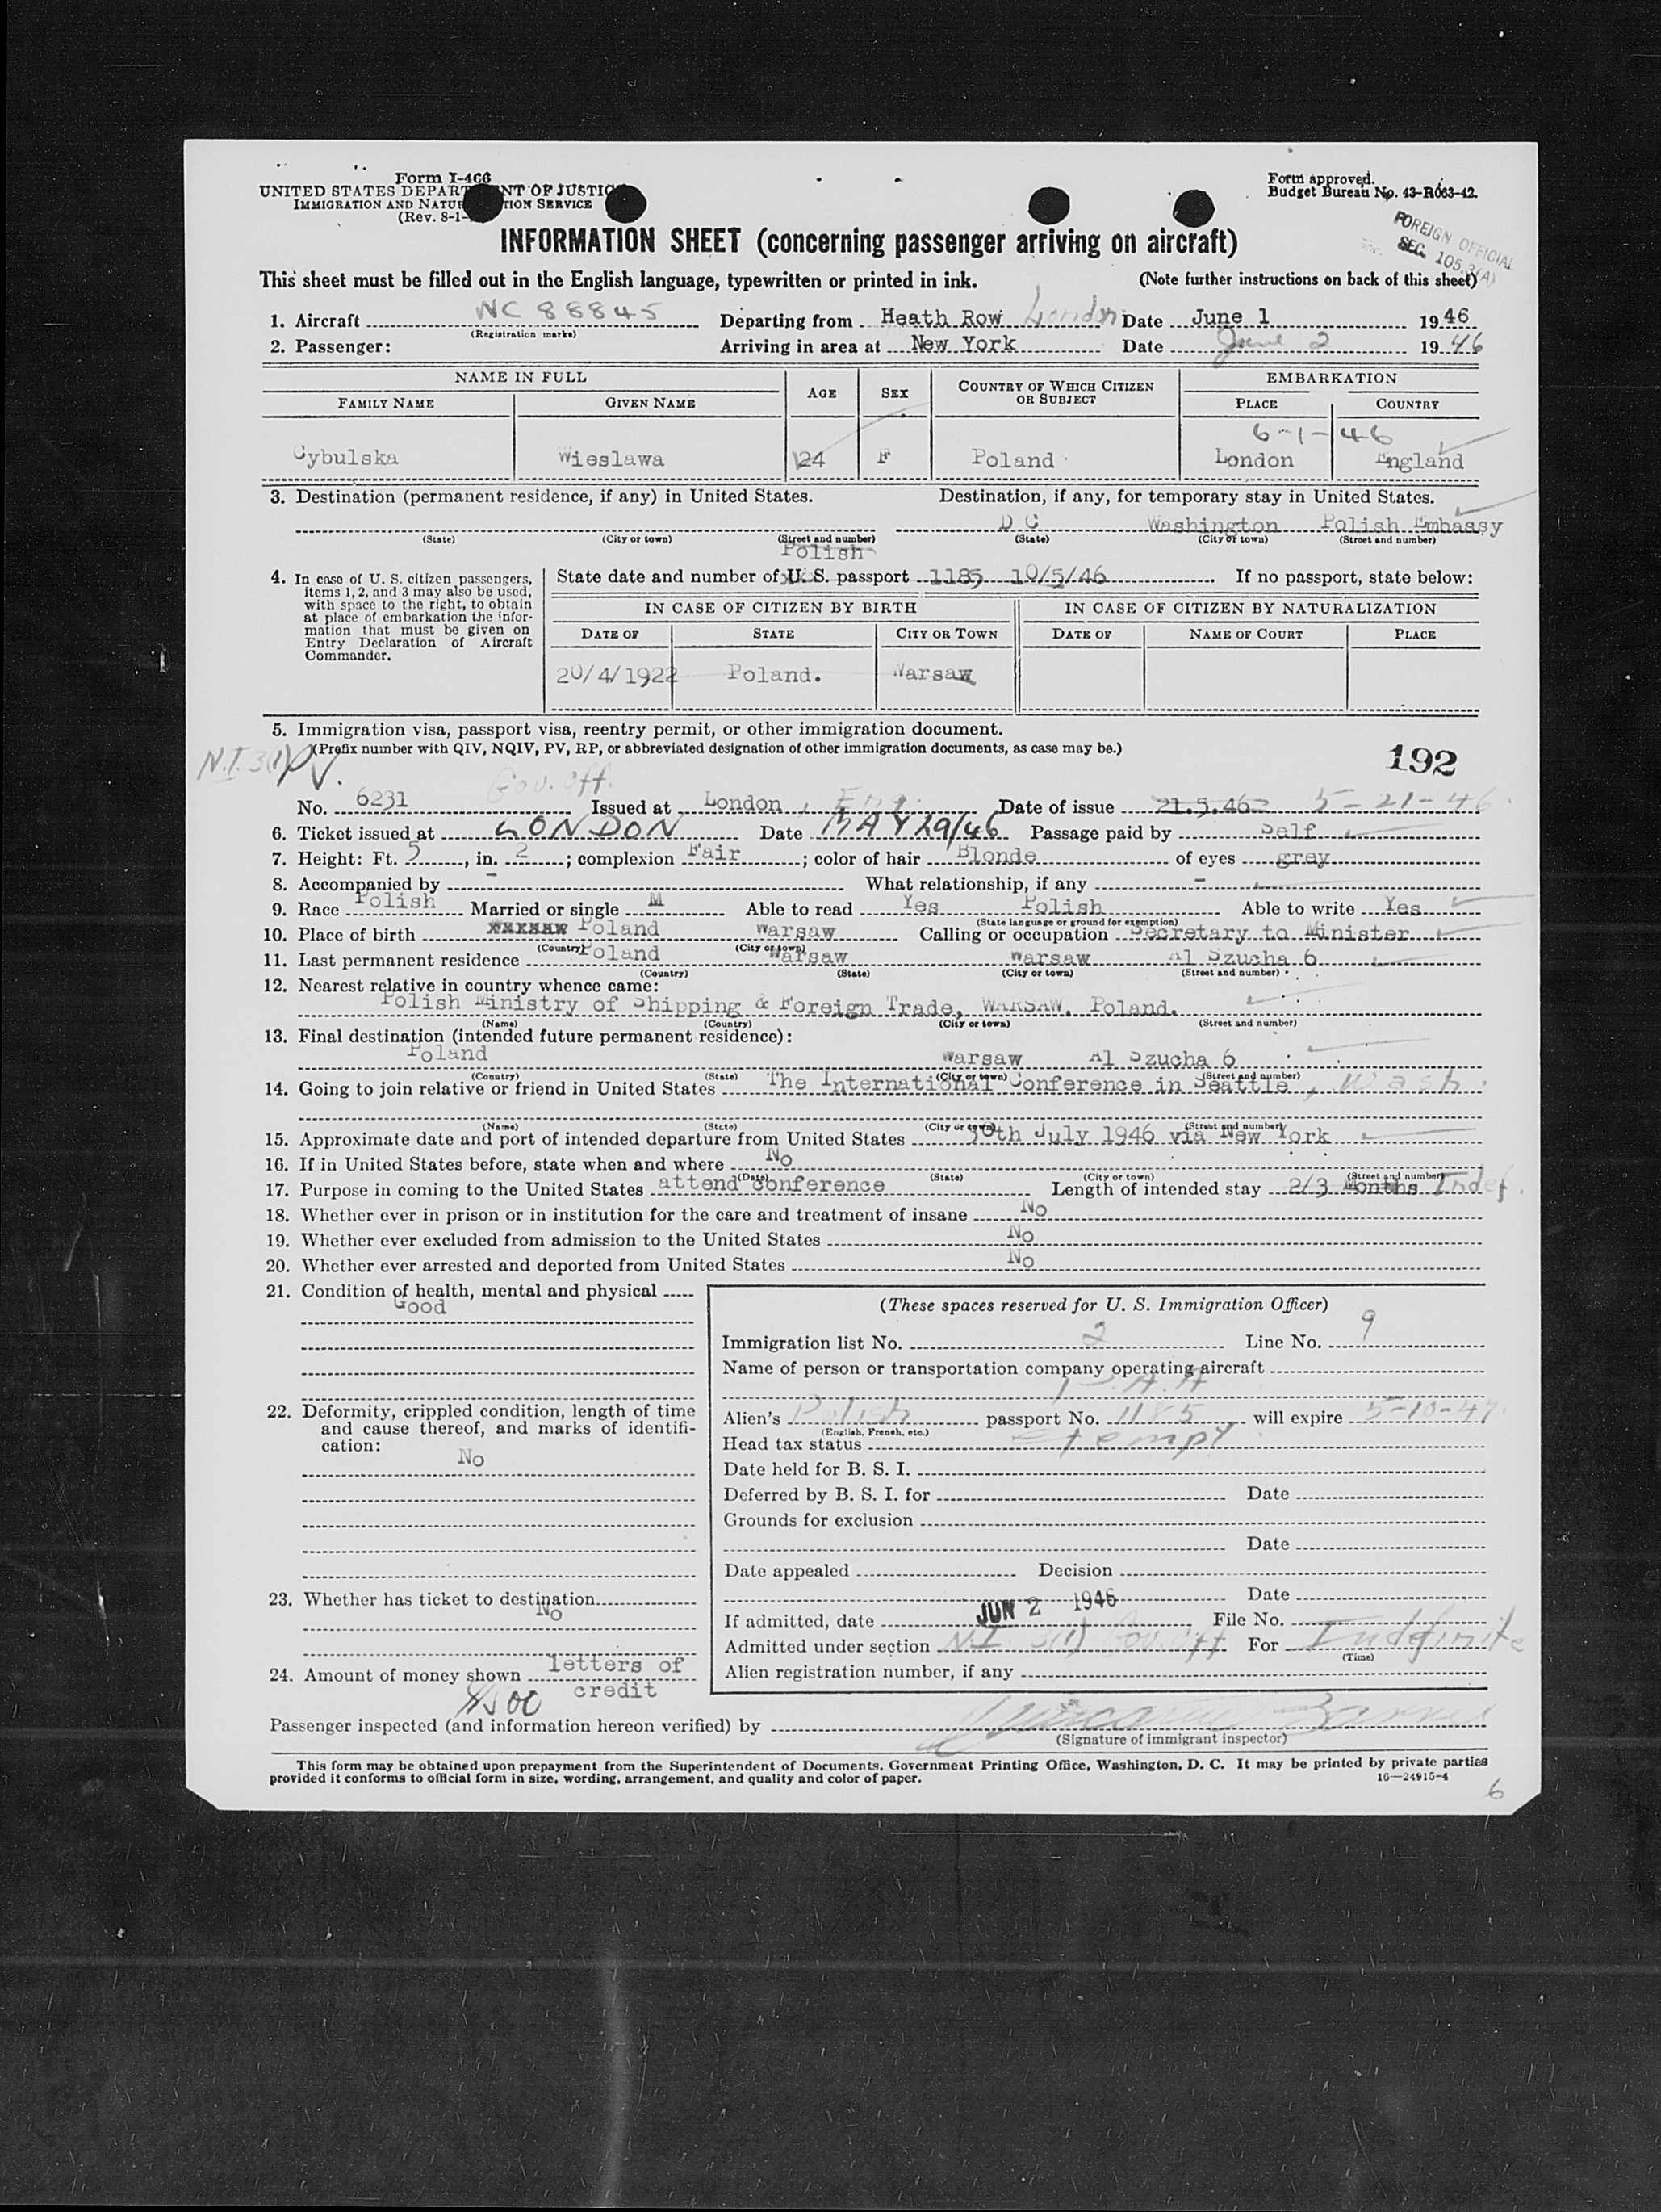 Form I-466
UNITED STATES DEPARTMENT OF JUSTICE
IMMIGRATION AND NATURALIZATION SERVICE
(Rev. 8-1-
Form approved.
Budget Bureau No. 43-R063-42.
FOREIGN OFFICIAL
SEC. 105.3(A)
INFORMATION SHEET (concerning passenger arriving on aircraft)
This sheet must be filled out in the English language, typewritten or printed in ink. (Note further instructions on back of this sheet)
1. Aircraft NC 88845 Departing from Heath Row London Date June 1 1946
(Registration marks)
2. Passenger: Arriving in area at New York Date June 2 1946
NAME IN FULL AGE SEX COUNTRY OF WHICH CITIZEN OR SUBJECT EMBARKATION
FAMILY NAME GIVEN NAME PLACE COUNTRY
6-1-46
Cybulska Wieslawa 24 F Poland London England
3. Destination (permanent residence, if any) in United States. Destination, if any, for temporary stay in United States.
D C Washington Polish Embassy
(State) (City or town) (Street and number) (State) (City or town) (Street and number)
Polish
4. In case of U. S. citizen passengers, items 1, 2, and 3 may also be used, with space to the right, to obtain at place of embarkation the information that must be given on Entry Declaration of Aircraft Commander.
State date and number of U. S. passport 1185 10/5/46 If no passport, state below:
IN CASE OF CITIZEN BY BIRTH IN CASE OF CITIZEN BY NATURALIZATION
DATE OF STATE CITY OR TOWN DATE OF NAME OF COURT PLACE
20/4/1922 Poland. Warsaw
5. Immigration visa, passport visa, reentry permit, or other immigration document.
(Prefix number with QIV, NQIV, PV, RP, or abbreviated designation of other immigration documents, as case may be.)
N.I. 3(1) PV. 192
Gov. off.
No. 6231 Issued at London, Eng. Date of issue 21.5.46 5-21-46
6. Ticket issued at LONDON Date MAY 29/46 Passage paid by Self
7. Height: Ft. 5, in. 2; complexion Fair; color of hair Blonde of eyes grey
8. Accompanied by - What relationship, if any -
9. Race Polish Married or single M Able to read Yes Polish Able to write Yes
(State language or ground for exemption)
10. Place of birth Poland Warsaw Calling or occupation Secretary to Minister
(Country) (City or town)
11. Last permanent residence Poland Warsaw Warsaw Al Szucha 6
(Country) (State) (City or town) (Street and number)
12. Nearest relative in country whence came:
Polish Ministry of Shipping & Foreign Trade, WARSAW, Poland.
(Name) (Country) (City or town) (Street and number)
13. Final destination (intended future permanent residence):
Poland Warsaw Al Szucha 6
(Country) (State) (City or town) (Street and number)
14. Going to join relative or friend in United States The International Conference in Seattle, Wash.
(Name) (State) (City or town) (Street and number)
15. Approximate date and port of intended departure from United States 30th July 1946 via New York
16. If in United States before, state when and where No
(Date) (State) (City or town) (Street and number)
17. Purpose in coming to the United States attend conference Length of intended stay 2/3 Months Indef.
18. Whether ever in prison or in institution for the care and treatment of insane No
19. Whether ever excluded from admission to the United States No
20. Whether ever arrested and deported from United States No
21. Condition of health, mental and physical
Good
22. Deformity, crippled condition, length of time and cause thereof, and marks of identification:
No
23. Whether has ticket to destination
No
24. Amount of money shown letters of credit
$500
(These spaces reserved for U. S. Immigration Officer)
Immigration list No. 2 Line No. 9
Name of person or transportation company operating aircraft
P.A.A
Alien's Polish passport No. 1185 will expire 5-10-47
(English, French, etc.)
Head tax status Exempt
Date held for B. S. I.
Deferred by B. S. I. for Date
Grounds for exclusion
Date
Date appealed Decision
Date
If admitted, date JUN 2 1946 File No.
Admitted under section N.I. 3(1) Gov. off For Indefinite
(Time)
Alien registration number, if any
Passenger inspected (and information hereon verified) by
(Signature of immigrant inspector)
This form may be obtained upon prepayment from the Superintendent of Documents, Government Printing Office, Washington, D. C. It may be printed by private parties
provided it conforms to official form in size, wording, arrangement, and quality and color of paper. 16—24915-4
6